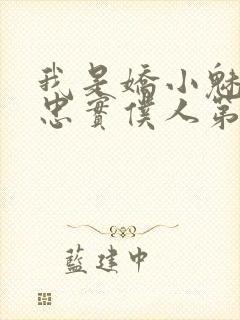 我是嬌小魅
忠實僕人第
藍建中